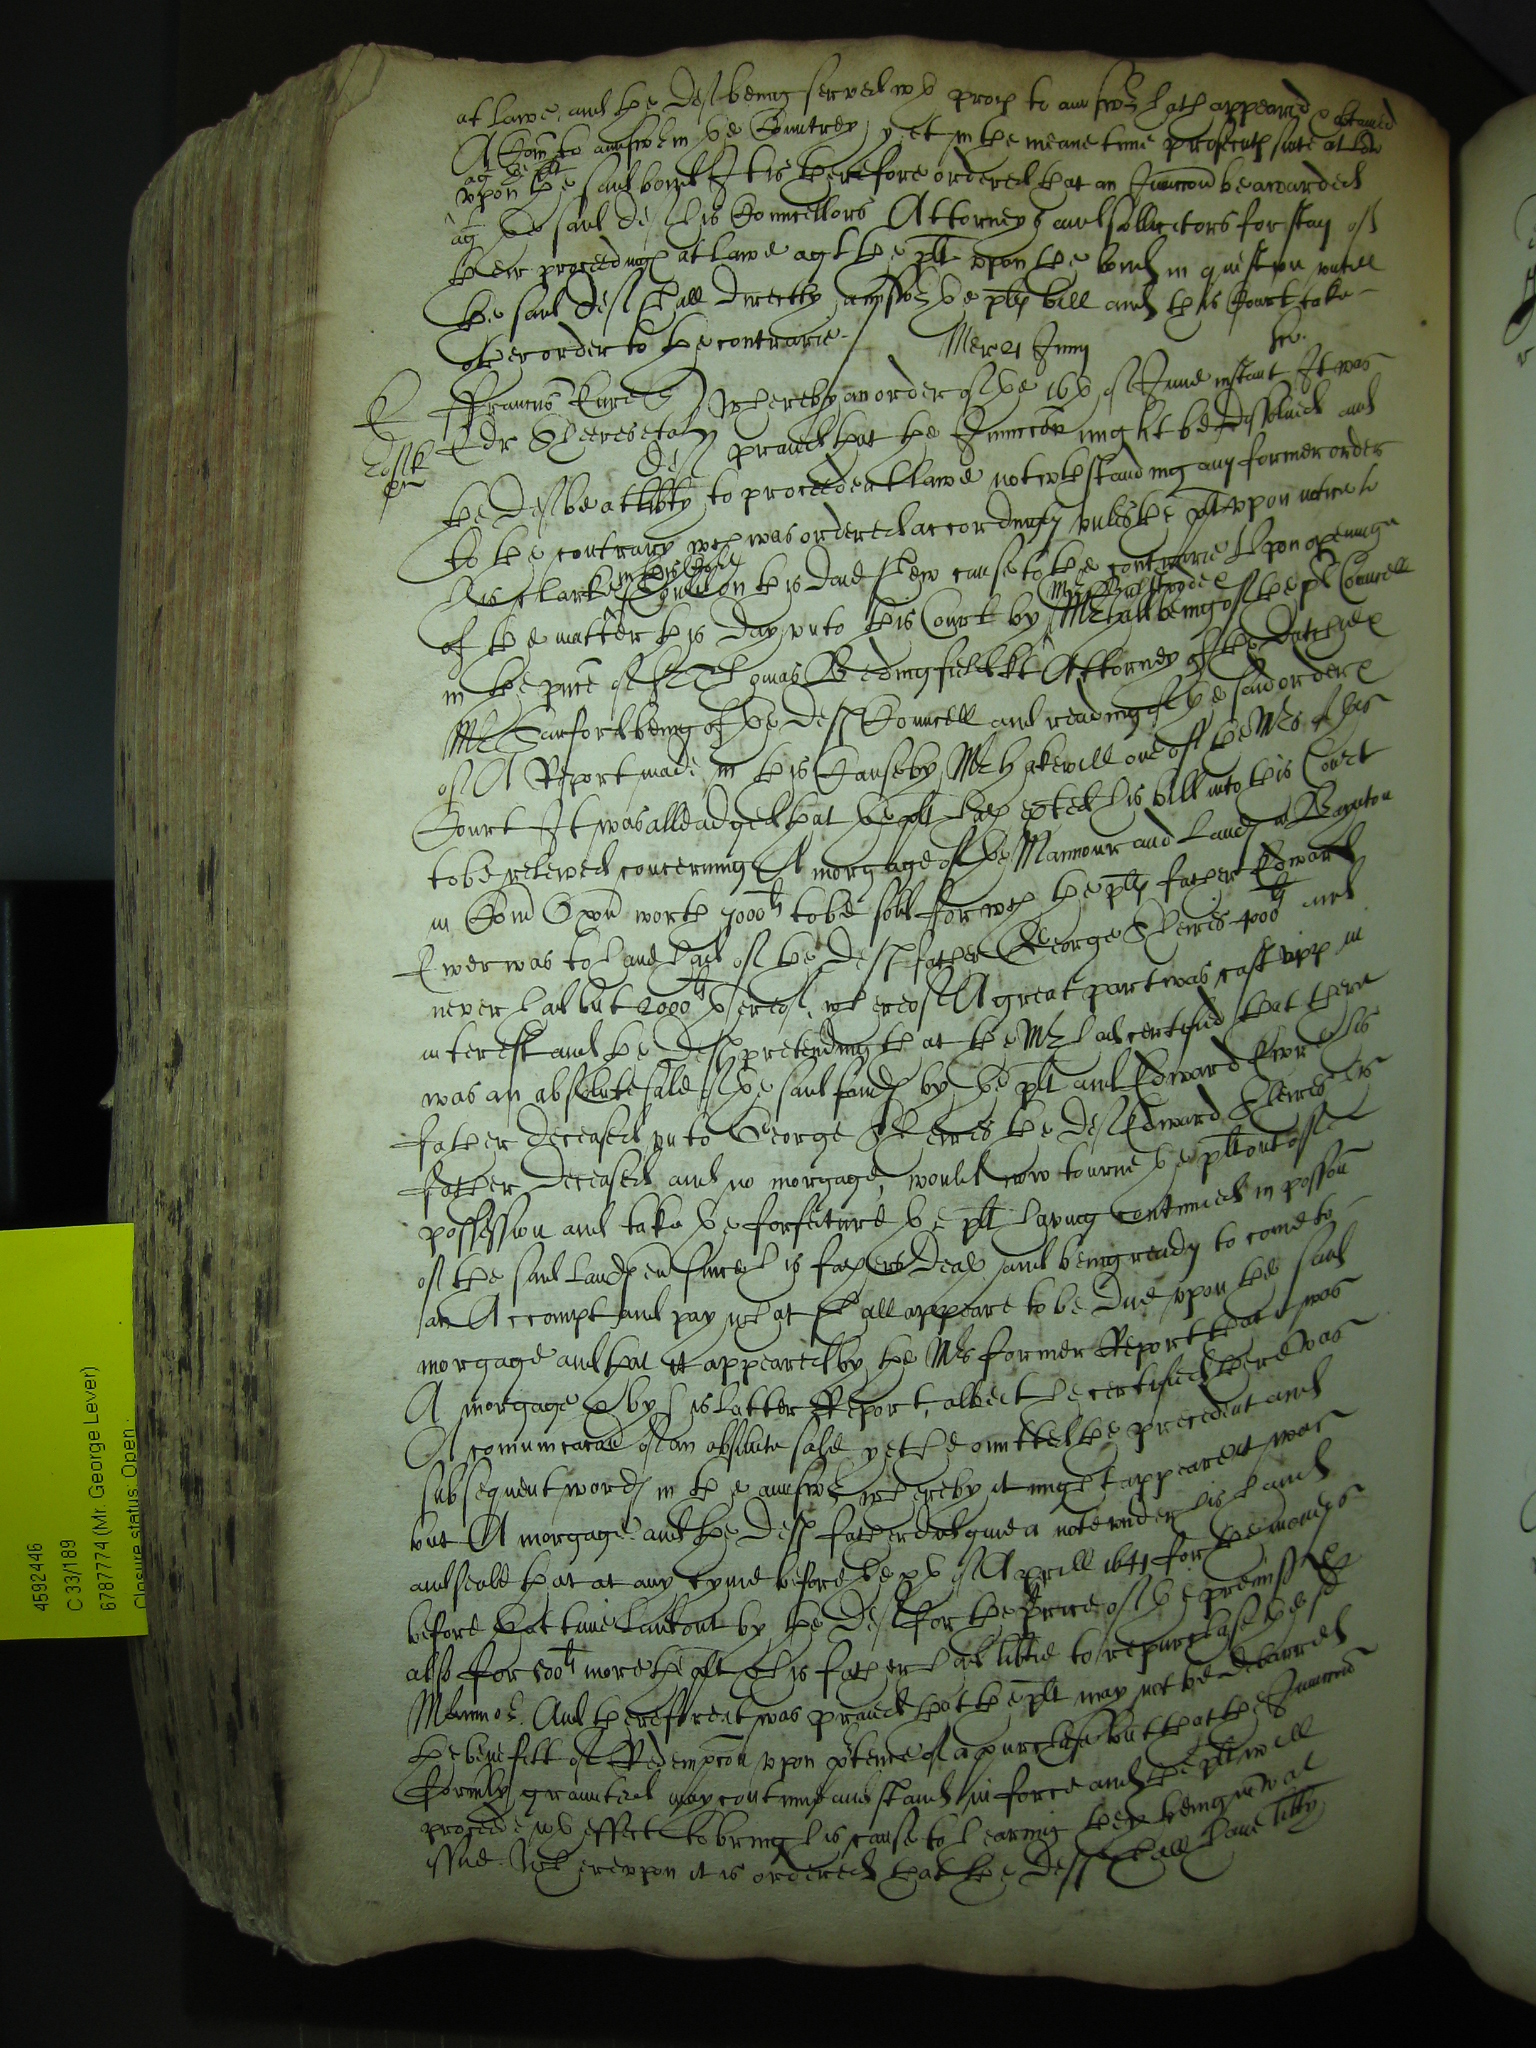 at lawe and the Deft being served wth proces to answer hath appeared & obteined
A Com to answere in the Countrey yet in the meane time prosecuteth suite at lawe
agt the plt
upon the said bond It is therefore ordered that an Iniuncon be awarded
agt the said Deft his Councellors Attorneys and sollicitors for stay of
their proceedings at lawe agt the plt upon the bond in question untill
the said Deft shall directly answer the plts bill and this Court take
other order to the contrarie
Mercur 21 Junij
Whereby an order of the 16th of June instant It was
Deft praied that the Iniuncon might be dissolved and
the Deft be at libty to proceede at lawe notwthstanding any former order
to the contrary wch was ordered accordingly unles the plt upon notice to
his Clarke should on this day shew cause to the contrarie Upon opening
of the matter this day unto this Court by Mr being of the plts Councell
in the pnce of Sr Thomas Bedingfield kt Attorney of the Datchie &
Mr being of the Defts Councell and reading of the said order &
of A Report made in this Cause by Mr Hakewill one of the Mrs of this
Court It was alleadged that the plt hath exhted his bill into this Court
to be releived concerning A morgage of the Mannour and lands of
in Com Oxon worth 7000li to be sold for wch the plts father Edward
Ewer was to have had of the Defts father George Sheires 4000li and
never had but 2000li thereof, whereof A great part was cast upp in
interest and the Deft pretending that the Mr had certified that there
was an absolute sale of the said lands by the plt and Edward Ewer his
father deceased unto George Sheires the Deft Edward Sheires his
father deceased and no morgage, would now tourne the plt out of
possession and take the forfeiture the plt having continued in posson
of the said lands ever since his fathers death and being ready to come to
an Accompt and pay what shall appeare to be due upon the said
morgage and that it appeared by the Mrs former Report that it was
A morgage & by his latter Report, albeit he certified there was
A comunicacon of an absolute sale yet he omitted the precedent and
subsequent words in the answer whereby it might appeare it was
but A morgage and the Defts father did give a note under his hand
and seale that at any tyme before the xth of Aprill 1641 for the moneys
before that time laid out by the Deft for the price of the premisses &
also for 500li more the plt & his father had libtie to repurchase the sd
Mannor. And therefore it was praied that the plt may not be debarred
the benefitt of Redempcon upon ptence of a purchase but that the Iniuncon
formerly graunted may continue and stand in force and the plt will
proceede wth effect to bring his cause to hearing the same being now at
issue. Whereupon it is ordered that the Deft shall have libty
4592446
C 33/189
6787774 (Mr. George Lever)
Closure status: Open